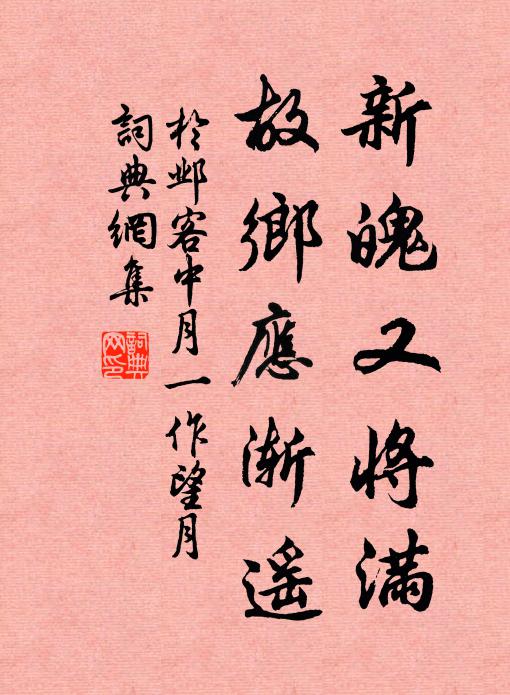 新魄又将滿
故鄉應渐遥
於邺客中月一作望月
詞典網集
詞典网印